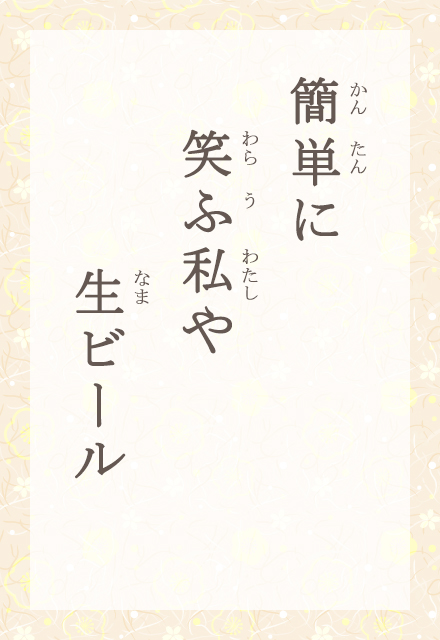 簡単に
かん たん
笑ふ私や
わら う わたし
生ビール
なま